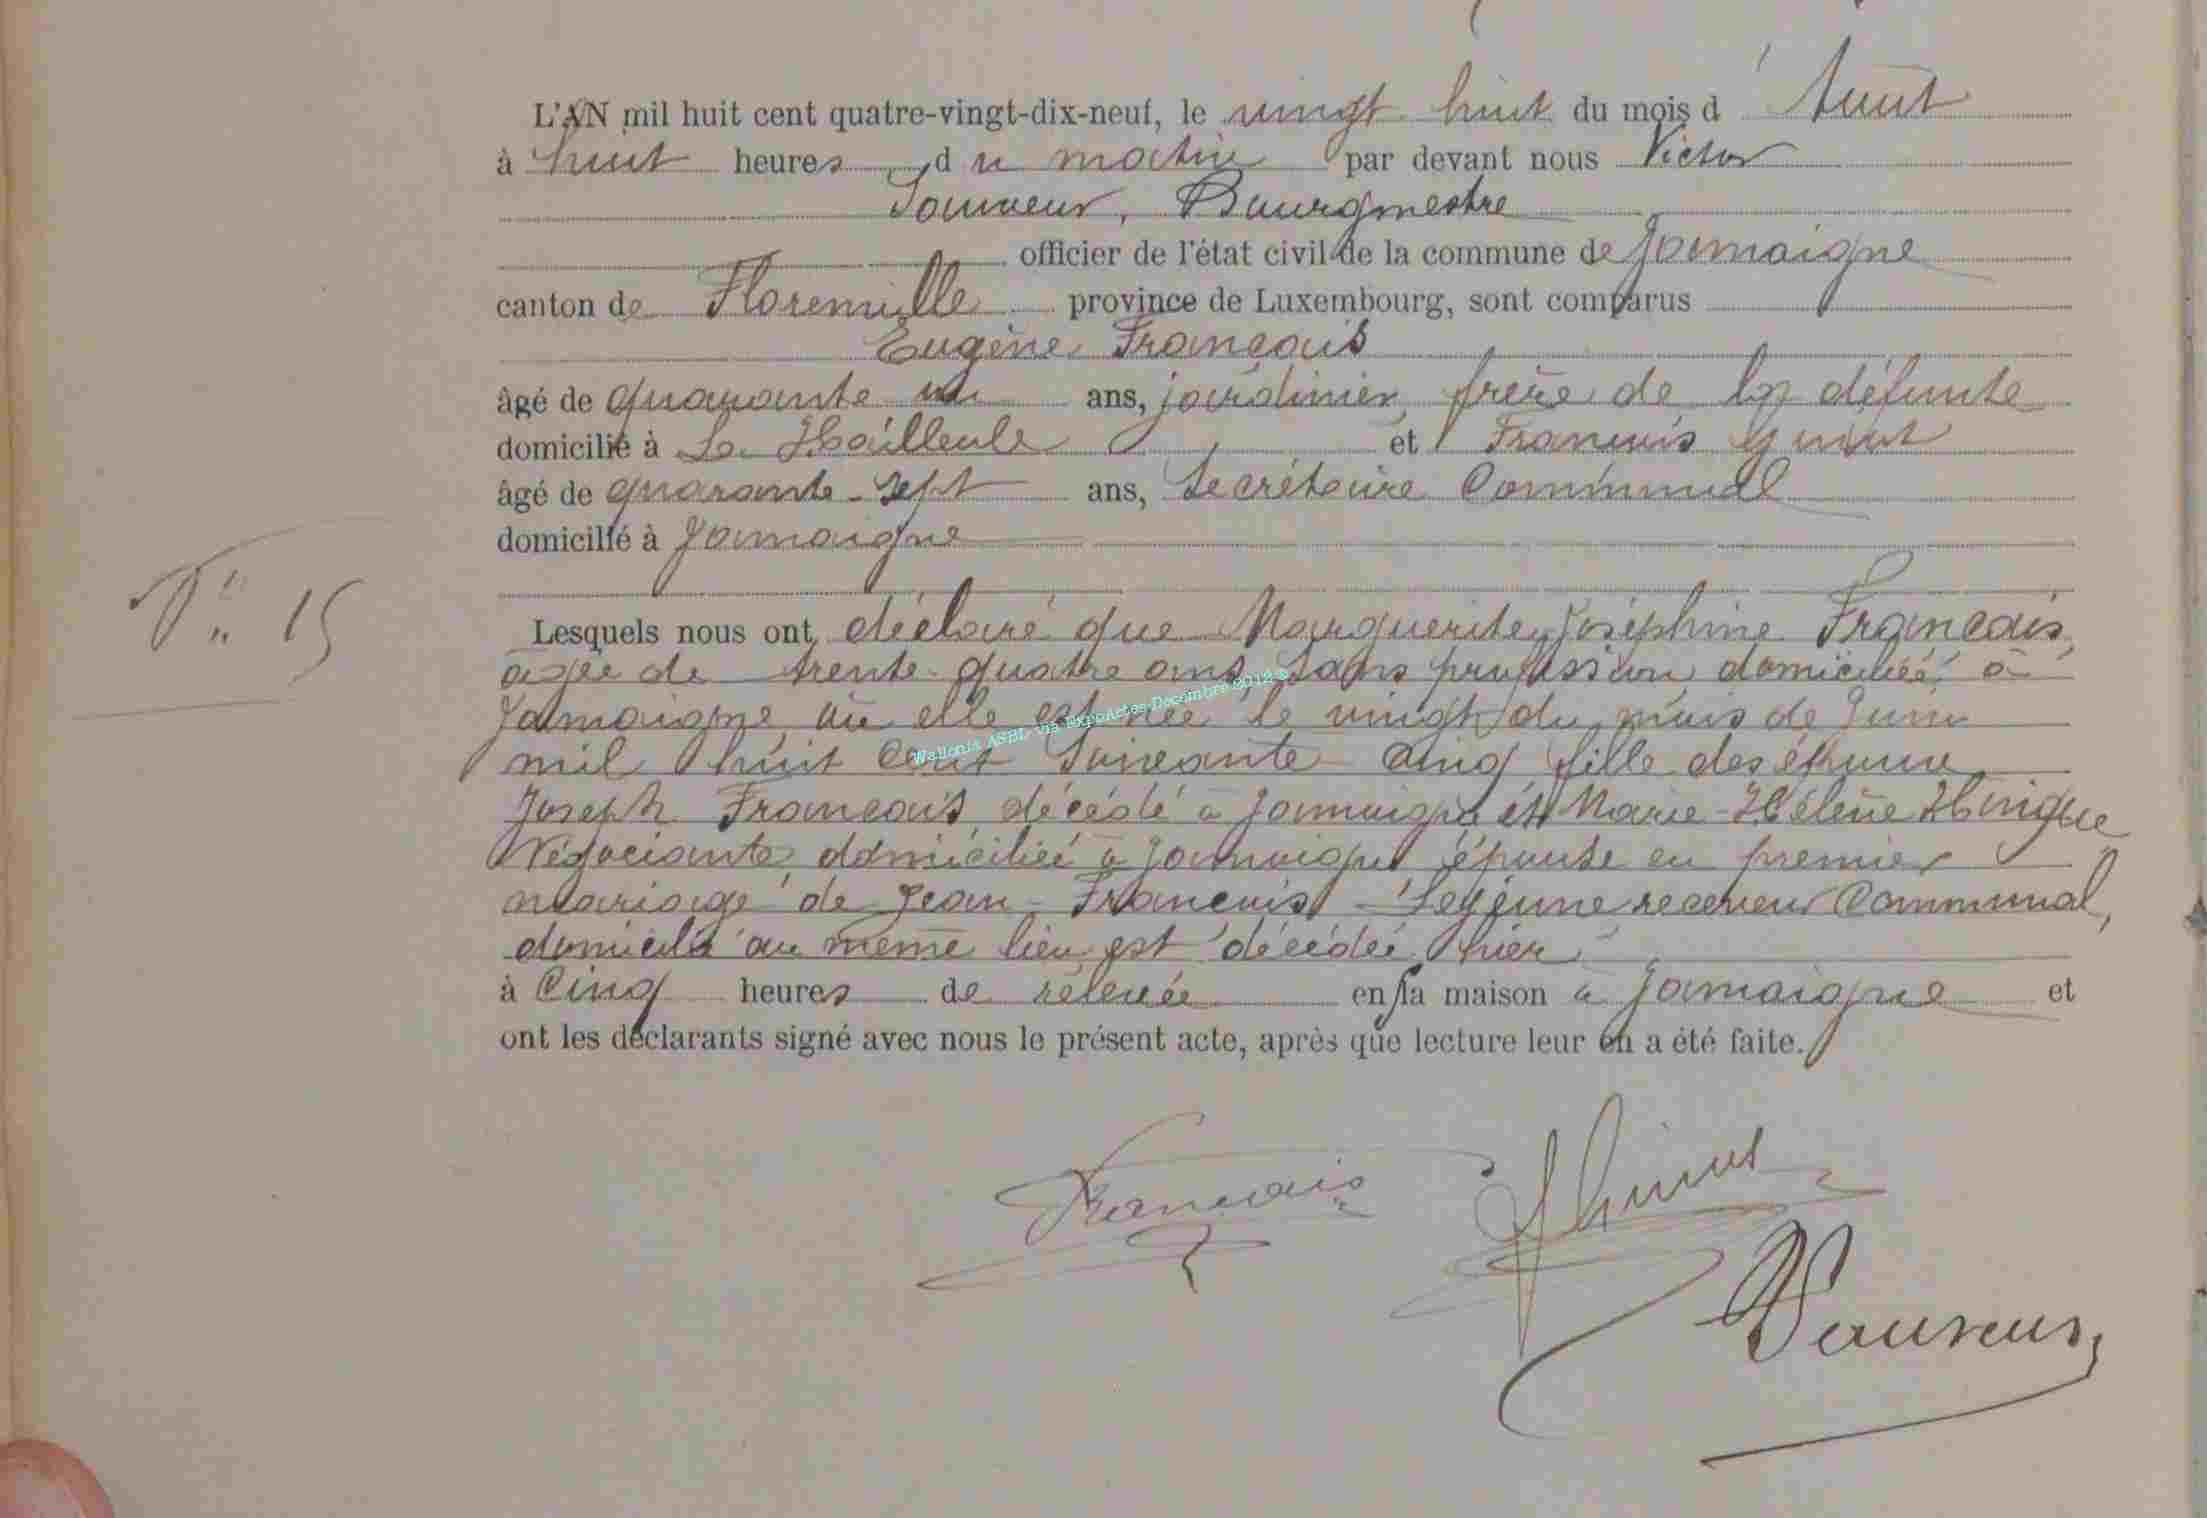 L'AN mil huit cent quatre-vingt-dix-neuf, le vingt huit du mois d'Août
à huit heures du matin par devant nous Victor
Sauveur, Bourgmestre
officier de l'état civil de la commune de Jamoigne
canton de Florenville province de Luxembourg, sont comparus
Eugène François
âgé de quarante un ans, jardinier, frère de la défunte
domicilié à La Hailleule et François
âgé de quarante-sept ans, Secrétaire Communal
domicilié à Jamoigne
N° 15
Lesquels nous ont déclaré que Marguerite Joséphine François,
âgée de trente-quatre ans, sans profession, domiciliée à
Jamoigne, où elle est née le vingt du mois de Juin
mil huit cent soixante cinq fille des époux
Joseph François, décédé à Jamoigne et Marie-Hélène Hinique
Négociante, domiciliée à Jamoigne épouse en premier
mariage de Jean-François Lejeune receveur Communal,
domicilié au même lieu, est décédée hier
à Cinq heures de relevée en sa maison à Jamoigne et
ont les déclarants signé avec nous le présent acte, après que lecture leur en a été faite.
Wallonia ASBL via ExpoActes Decembre 2012 ©
François
VSauveur